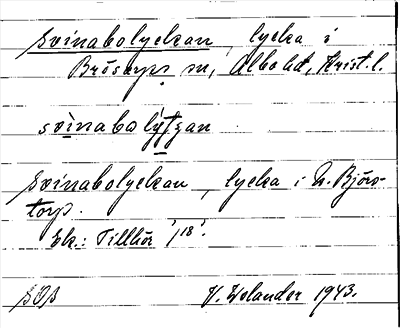 Svinabolyckan, lycka i
Bröstorps sn, Albo hd, Krist. l.
svìnabolýtʃan
Svinabolyckan, lycka i N. Björs-
torp.
Ek.: Tillhör 1/18.
SOS V. Welander 1943.